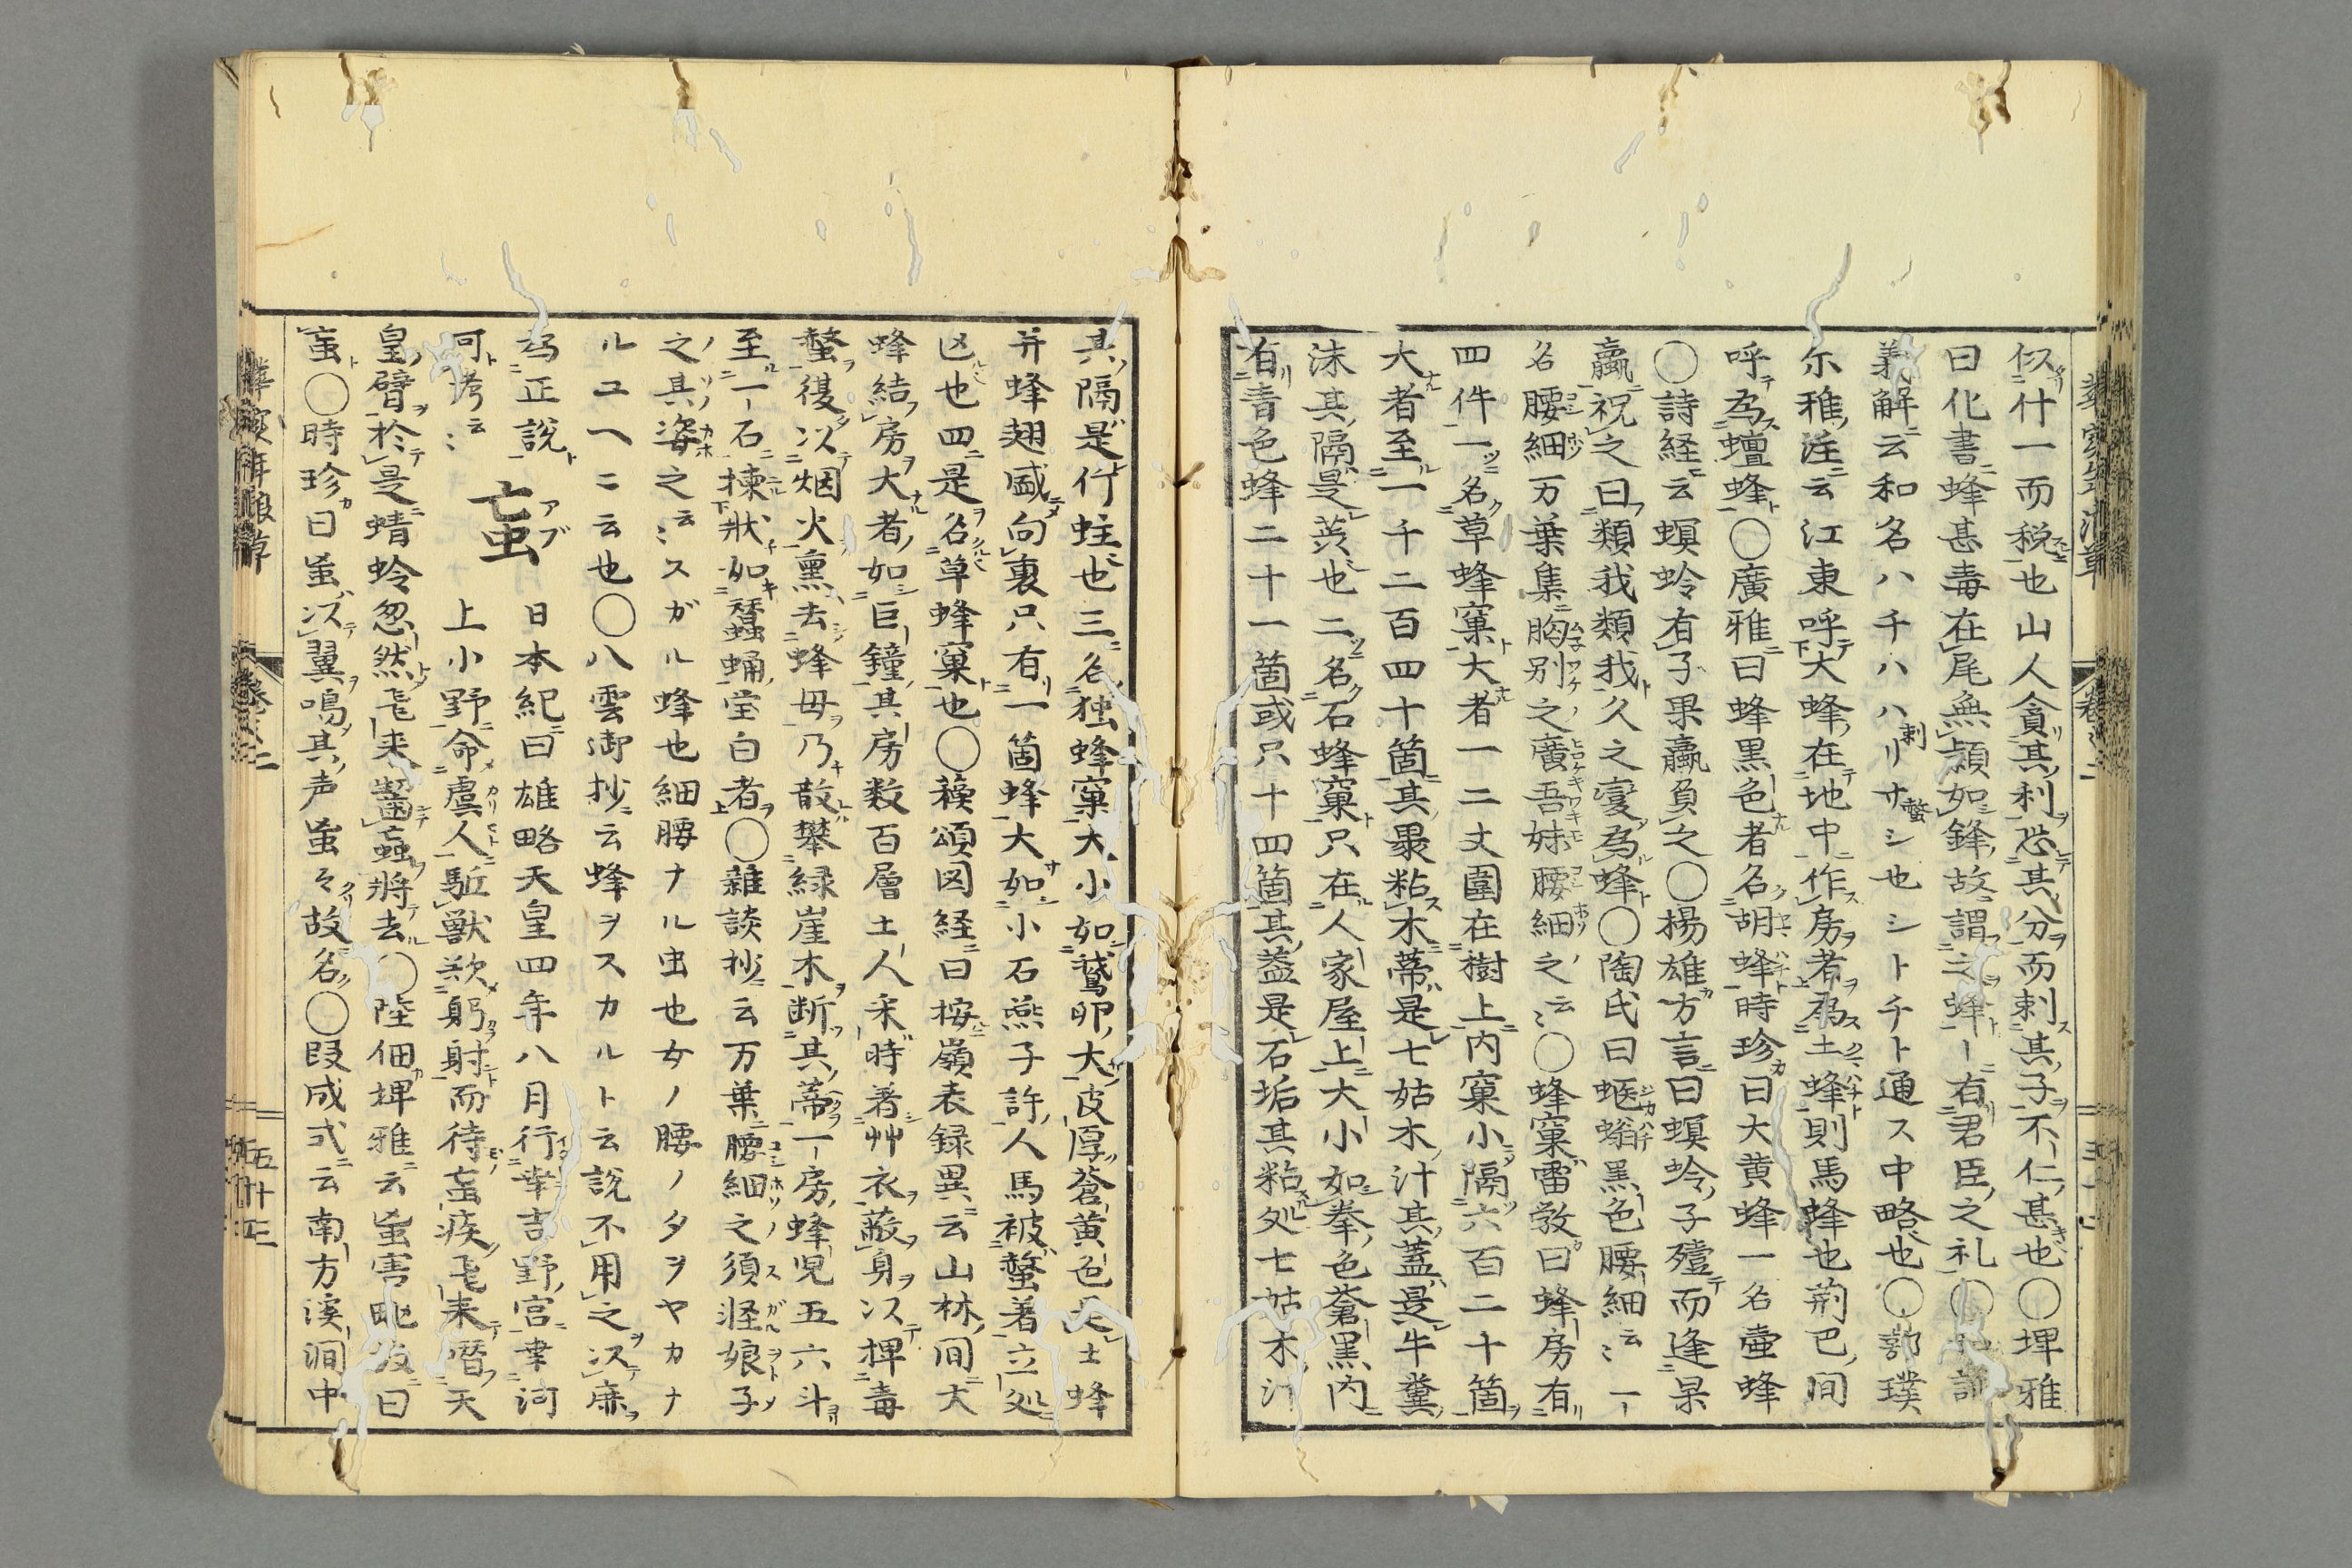 似什一而税也山人貪其利恐其分而刺其子不仁甚也〇埤雅
曰化書蜂甚毒在尾無頴如鋒故謂之蜂ー有君臣之礼〇
義解云和名ハチハハリサシ也シトチト通ス中略也〇郭璞
尓雅注云江東呼大蜂在地中作房者為土蜂則馬蜂也荊巴間
呼為蟺蜂〇廣雅曰蜂黒色者名胡蜂時珍曰大黄蜂一名壷蜂
〇詩経云螟蛉有子果蠃負之〇揚雄方言曰螟蛉子殪而逢果
蠃祝之曰類我類我久之変為蜂〇陶氏曰蜾螉黒色腰細云〻一
名腰細万葉集胸別之廣吾妹腰細之云〻〇蜂窠雷斅曰蜂房有
四件一名草蜂窠大者一二丈圍在樹上内窠小隔六百二十箇
大者至一千二百四十箇其褁粘木蒂是七姑木汁其蓋是牛糞
沫其隔是葉也二名石蜂窠只在人家屋上大小如拳色蒼黒内
有青色蜂二十一箇或只十四箇其蓋是石垢其粘処七姑木汁
其隔是竹蛀也三名独蜂窠大小如鵞卵大皮厚蒼黄色是土蜂
并蜂翅盛向裏只有一箇蜂大如小石燕子許人馬被螫着立処
凶也四是名草蜂窠也〇蘓頌図経曰按嶺表録異云山林間大
蜂結房大者如巨鐘其房数百層土人采時着艸衣蔽身以捍毒
螫復以烟火熏去蜂母乃散攀緑崖木断其蒂一房蜂児五六斗
至一石揀状如蠶蛹瑩白者〇雑談抄云万葉腰細之須軽娘子
之其姿之云〻スガル蜂也細腰ナル虫也女ノ腰ノタヲヤカナ
ルユヘニ云也〇八雲御抄云蜂ヲスカルト云説不用之以麻
為正説
虻 アブ
日本紀曰雄略天皇四年八月行幸吉野宮幸河
上小野命虞人駈獣欲躬射而待虻疾飛来噆天
皇臂於是蜻蛉忽然飛来齧蝱将去〇陸佃埤雅云虻害
曰
虻〇時珍曰虻以翼鳴其声虻々故名〇段成式云南方溪澗中
巻之二
五十三